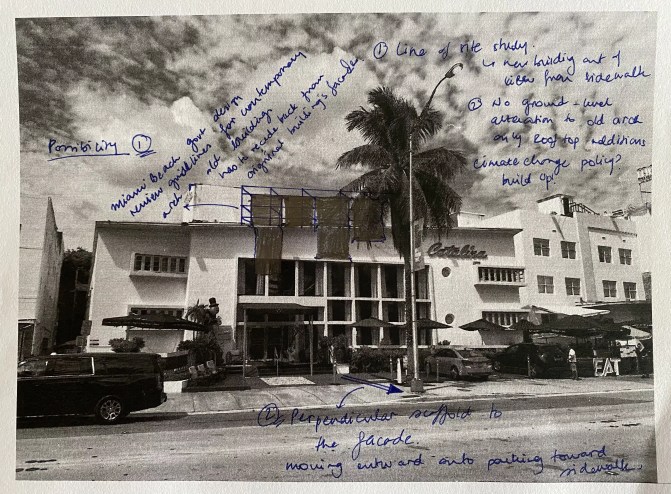 Possibility ①
Miami Beach govt design
review guidelines for contemporary
arch. → old building
has to recede back from
original building's facade
① Line of site study.
↳ new building out of
from sidewalk
② No ground-level
alteration to old arch
only Roof top additions
Climate change policy?
build up!
Catalina
EAT
② Perpendicular scaffold to
the facade.
moving outward onto parking toward
sidewalk.